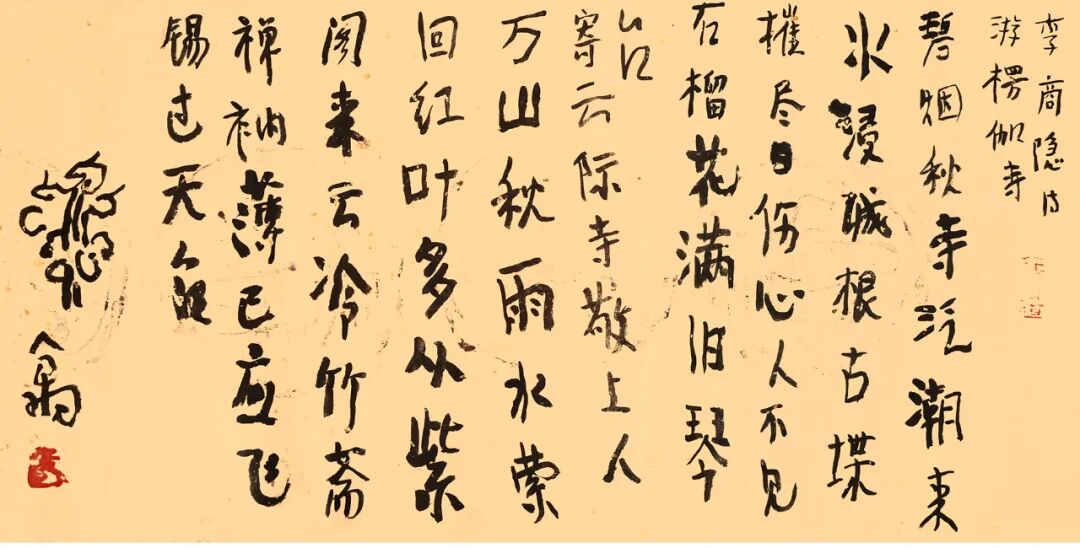 李商隐诗
游楞伽寺
碧烟秋寺泛潮来
水浸城根古堞
摧尽日伤心人不见
石榴花满旧琴
台
寄云际寺敬上人
万山秋雨水萦
回红叶多从紫
阁来云冷竹斋
禅衲薄已应飞
锡过天台
翁